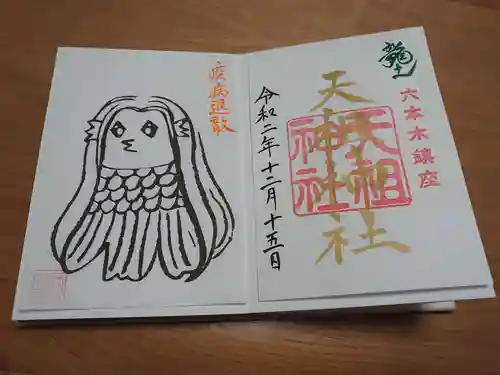 龍土
六本木鎮座
天祖神社
天祖
神社
令和二年十二月十五日
疾病退散